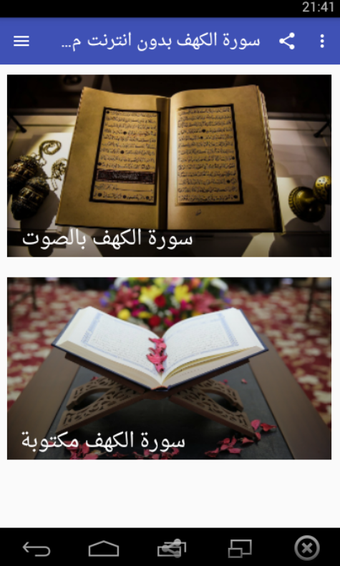 21:41
سورة الكهف بدون انترنت م...
سورة الكهف بالصوت
سورة الكهف مكتوبة